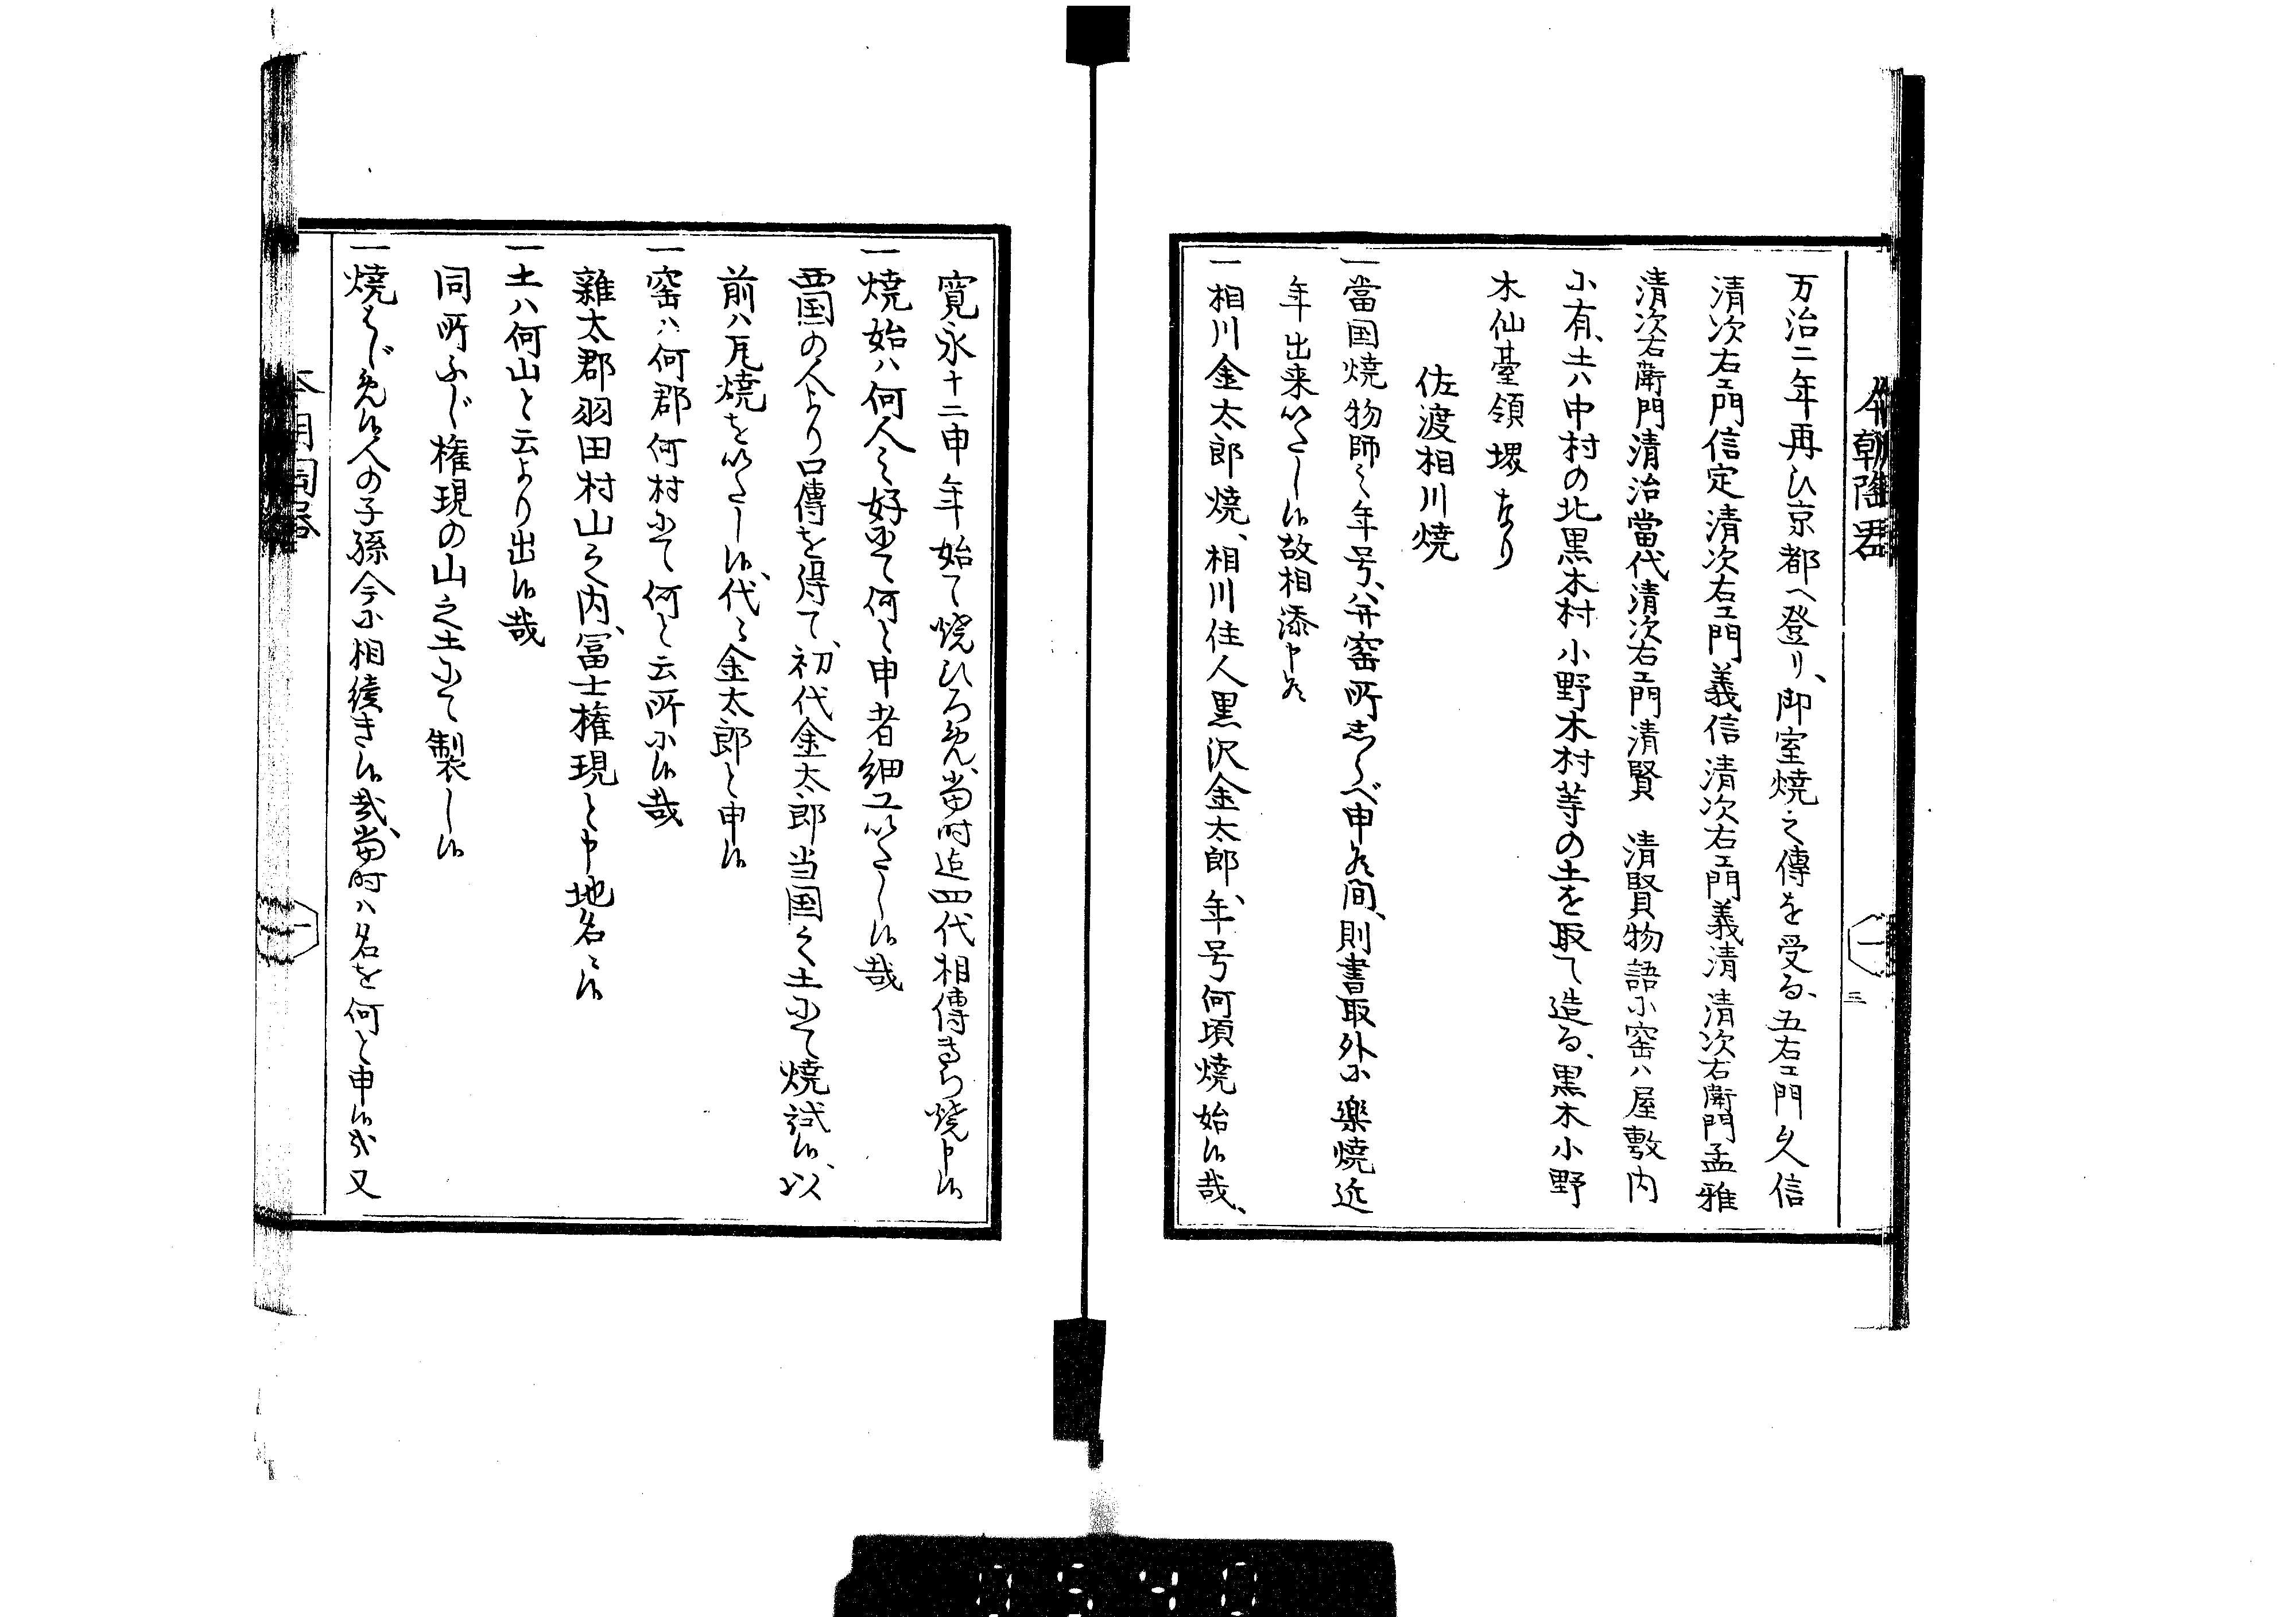 万治二年再ひ京都へ登り、御室焼之傳を受る、五右エ門久信
清次右エ門信定清次右エ門義信清次右エ門義清清次右衛門孟雅
清次右衛門清治當代清次右エ門清賢　清賢物語小窑ハ屋敷内
小有、土ハ中村の北黒木村小野木村等の土を取て造る、黒木小野
木仙臺領堺なり
佐渡相川焼
一當国焼物師之年号、并窑所しらべ申候間、則書取外小樂焼近
年出来いたし候故相添申候
一相川金太郎焼、相川住人黒沢金太郎、年号何頃焼始候哉、
寛永十二申年始て焼ひろめ、當时迄四代相傳
一焼始ハ何人之好にて何と申者細工いたし候哉
西国の人より口傳を得て、初代金太郎当国之土にて焼試候、以
前ハ瓦焼をいたし候、代々金太郎と申候
一窑ハ何郡何村にて何と云所小候哉
雜太郡羽田村山之内、冨士権現と申地名ニ候
一土ハ何山と云より出候哉
同所ふじ権現の山之土にて製し候
一焼はじめ候人の子孫今小相續き候哉、當时ハ名を何と申候哉又
本朝陶器
三